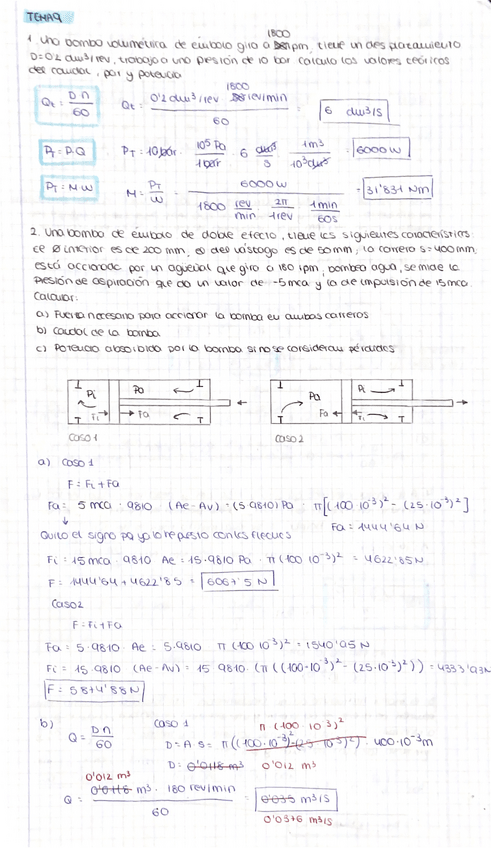 TEMA 9
1800
1. Una bomba volumétrica de émbolo gira a rpm, tiene un desplazamiento
D=0'2 dm³/rev, trabaja a una presión de 10 bar calcula los valores teóricos
del caudal, par y potencia
1800
Qt = D·n / 60   Qt = 0'2 dm³/rev rev/min / 60 = 6 dm³/s
Pt = P·Q   PT = 10 bar · 10⁵ Pa / 1 bar · 6 dm³ / s · 1m³ / 10³ dm³ = 6000 W
PT = M·W   M = PT / W = 6000 W / 1800 rev/min · 2π / 1 rev · 1 min / 60s = 31'831 Nm
2. Una bomba de émbolo de doble efecto, tiene las siguientes características
el Ø interior es de 200 mm, el del vástago es de 50 mm, la carrera s=400 mm.
está accionada por un cigüeñal que gira a 180 rpm, bombea agua, se mide la
presión de aspiración que da un valor de -5 mca y la de impulsión de 15 mca.
Calcular:
a) Fuerza necesaria para accionar la bomba en ambas carreras
b) Caudal de la bomba
c) Potencia absorbida por la bomba si no se consideran pérdidas
Pi Pa Pa Pi
Fi Fa Fa Fi
caso 1 caso 2
a) caso 1
F = Fi + Fa
Fa = 5 mca · 9810 (Ae - Av) = (5·9810) Pa · π[(100·10⁻³)² - (25·10⁻³)²]
Fa = 1444'64 N
Quito el signo pq ya lo he puesto con las flechas
Fi = 15 mca · 9810 Ae = 15·9810 Pa · π(100·10⁻³)² = 4622'85 N
F = 1444'64 + 4622'85 = 6067'5 N
Caso 2
F = Fi + Fa
Fa = 5·9810 · Ae = 5·9810 π(100·10⁻³)² = 1540'95 N
Fi = 15·9810 (Ae-Av) = 15·9810·(π((100·10⁻³)² - (25·10⁻³)²)) = 4333'93 N
F = 5874'88 N
b) Q = D·n / 60   caso 1   π(100·10⁻³)²
D = A·s = π((100·10⁻³)²-(25·10⁻³)²) · 400·10⁻³ m
D = 0'0118 m³ 0'012 m³
0'012 m³
Q = 0'0118 m³ · 180 rev/min / 60 = 0'035 m³/s
0'0376 m³/s